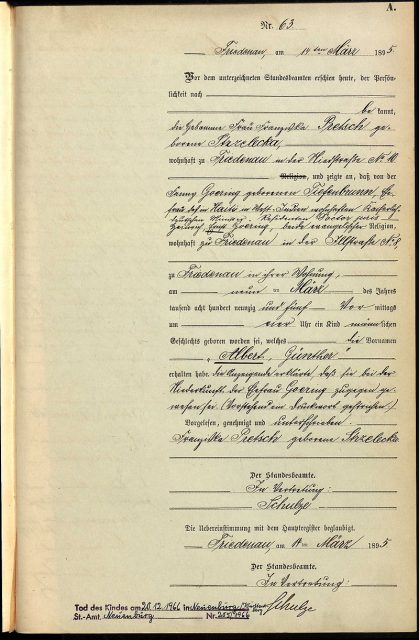 A.
Nr. 63
Friedenau, am 14ten März 1895.
Vor dem unterzeichneten Standesbeamten erschien heute, der Persön-
lichkeit nach
bekannt,
die Hebamme Frau Franziska Pretsch ge-
borene Strzelecka,
wohnhaft zu Friedenau in der Niedstraße No 10
Religion, und zeigte an, daß von der
Fanny Goering geborenen Tiefenbrunn, Ehe-
frau des in Haiti in West-Indien wohnhaften Kaiserlich
Deutschen Minister-Residenten Doctor juris
Heinrich Ernst Goering, beide evangelischer Religion,
wohnhaft zu Friedenau in der No 8
zu Friedenau in ihrer Wohnung,
am neun ten März des Jahres
tausend acht hundert neunzig und fünf Vormittags
um vier Uhr ein Kind männlichen
Geschlechts geboren worden sei, welches die Vornamen
„Albert Günther"
erhalten habe. Die Anzeigende erklärte, daß sie bei der
Niederkunft der Ehefrau Goering zugegen ge-
wesen sei. (Vorstehend ein Druckwort gestrichen.)
Vorgelesen, genehmigt und unterschrieben
Franziska Pretsch geborene Strzelecka
Der Standesbeamte.
In Vertretung:
Schulze
Die Uebereinstimmung mit dem Hauptregister beglaubigt.
Friedenau, am März 1895
Der Standesbeamte.
In Vertretung:
Schulze
Tod des Kindes am 20.12.1966 in Neuenbürg
St.-Amt Neuenbürg Nr. /1966